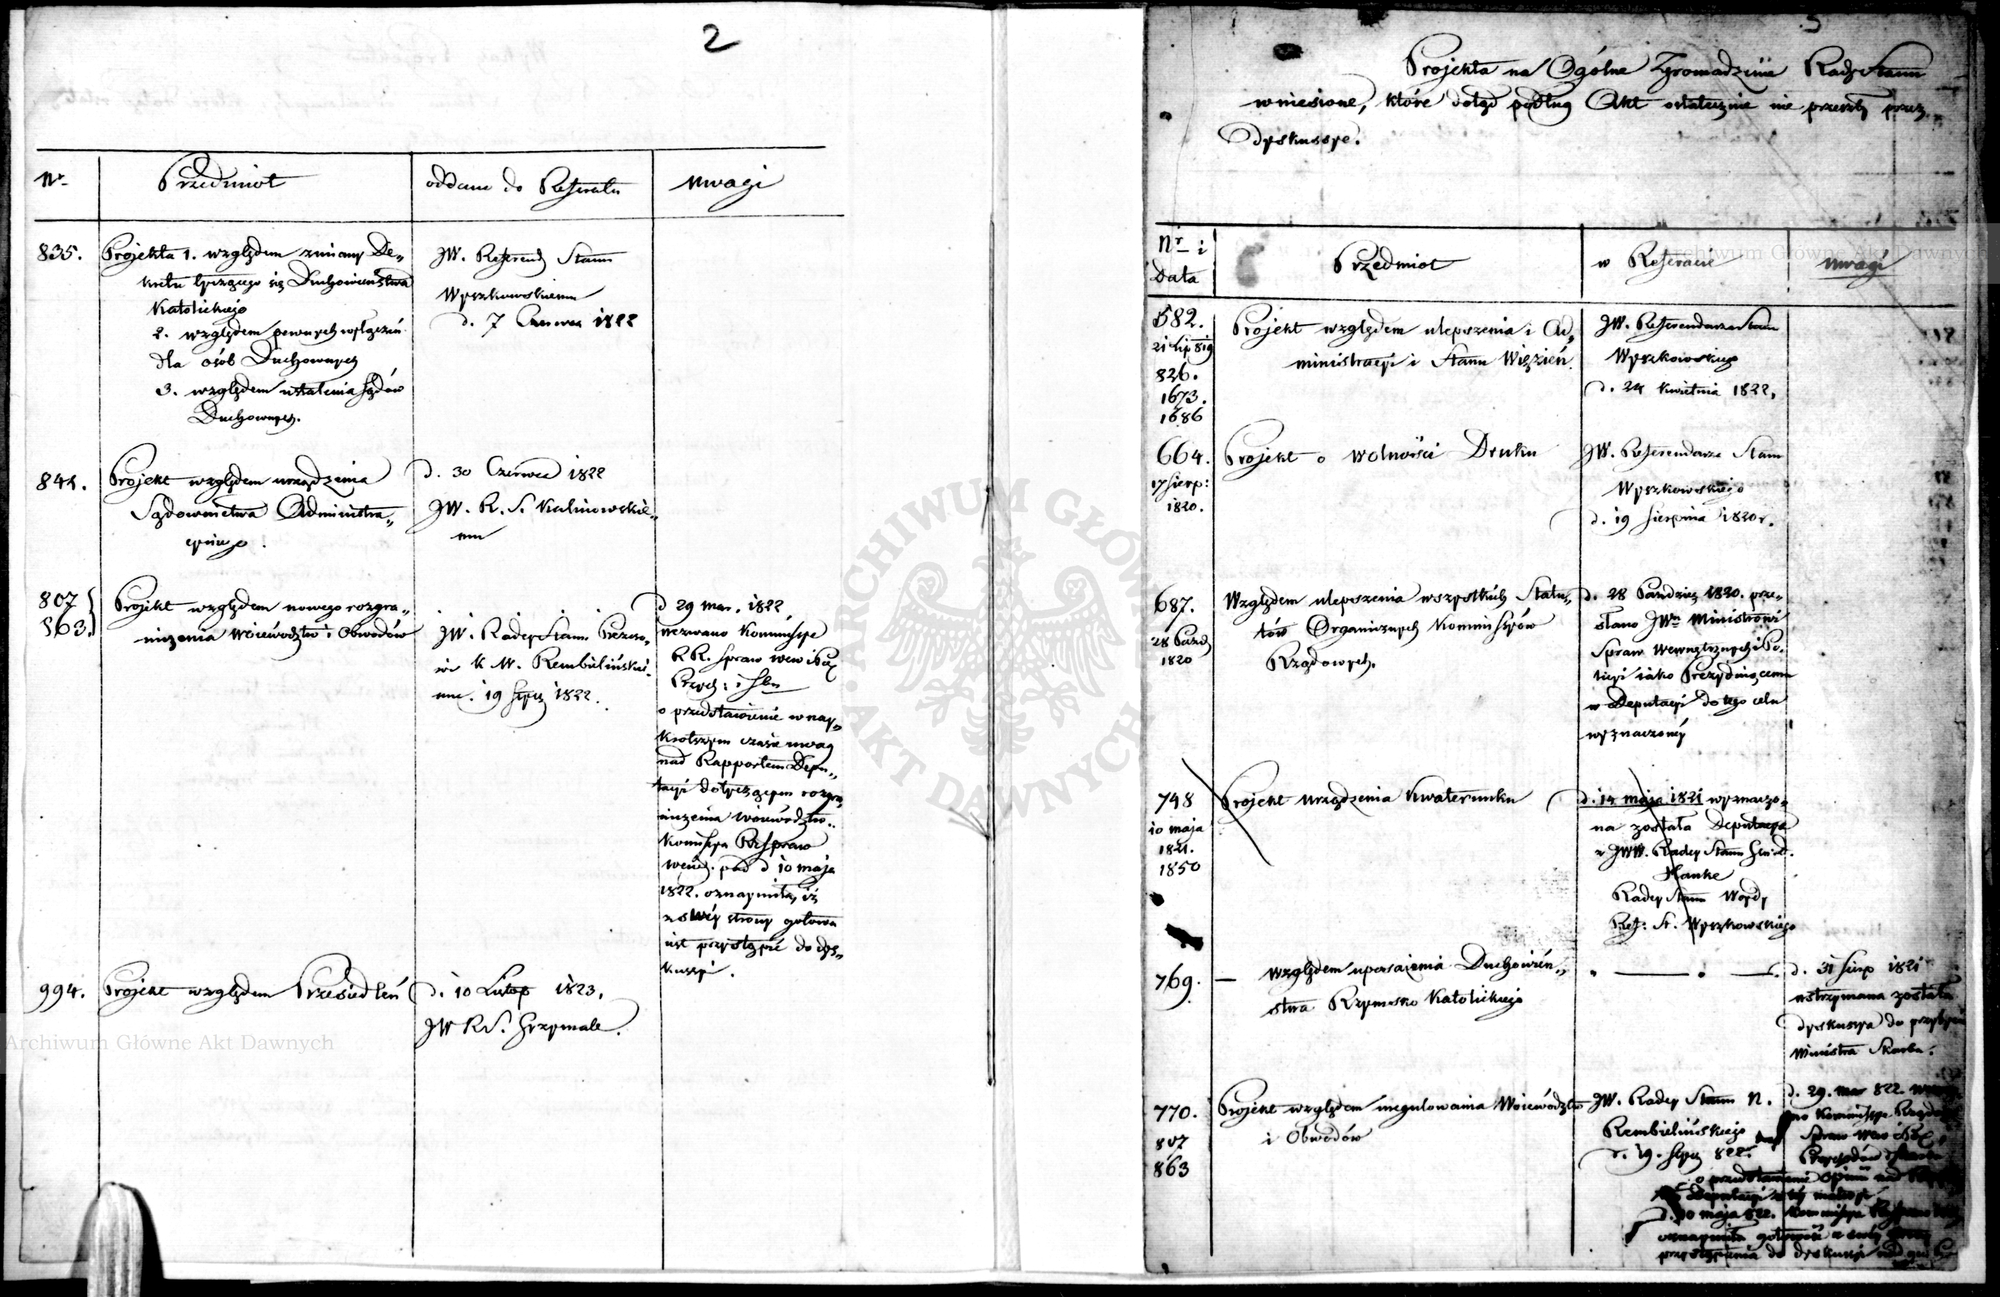 2
Nr.
Przedmiot
oddane do Referatu
uwagi
835.
Projekta 1. względem zmiany De„
kretu tyczącego się Duchowieństwa
Katolickiego
2. względem pewnych wyłączeń
dla osób Duchownych
3. względem ustalenia Sądów
Duchownych.
JW. Referend Stanu
Wyszkowskiemu
d. 7 Czerwca 1822
842.
Projekt względem urządzenia
Sądownictwa Administra„
cyinego.
d. 30 Czerwca 1822
JW. R. S. Kalinowskie„
mu
807
863.
Projekt względem nowego rozgra„
niczenia Województw i Obwodów
JW. Radcy Stanu Prezeso„
wi K. W. Rembielińskie„
mu. 19 Stycz 1822.
d 29 mar. 1822
wezwano Kommissye
RR. Spraw wew i Pol
Przych: i Sbu
o przedstawienie w nay„
krotszym czasie uwag
nad Rapportem Depu„
tacyi dotyczącym rozgra„
niczenia Woiewództw..
Kommissya RzSpraw
Wewn. pod d 10 maja
1822. oznaymiła, iż
z swéy strony gotowa
iest przystąpić do dys„
kussyi.
994.
Projekt względem Przesiedleń
d. 10 Listop 1823.
JW RS. Grzymale.
Projekta na Ogólne Zgromadzenie Rady Stanu
wniesione, które dotąd podług Akt ostatecznie nie przeszły przez
Dyskussye.
Nr i
Data
Przedmiot
w Referacie
uwagi
582.
21 lip 819
826.
1673.
1686
Projekt względem ulepszenia i Ad„
ministracyi i Stanu Więzień.
JW. Referendarza Stanu
Wyszkowskiego
d. 24 Kwietnia 1822.
664.
17 Sierp:
1820.
Projekt o wolności Druku
JW. Referendarza Stanu
Wyszkowskiego
d. 19 Sierpnia 1820r.
687.
28 Paźd
1820
Względem ulepszenia wszystkich Statu„
tów Organicznych Kommissyów
Rządowych.
d. 28 Paździer 1820. prze„
słano JWu Ministrowi
Spraw Wewnętrznych i Po„
licyi iako Prezyduiącemu
w Deputacyi do tego celu
wyznaczonéy
748
10 maja
1821.
1850
Projekt urządzenia Kwaterunku
d. 12 maja 1821 wyznaczo„
na została Deputacya
z JWW. Radcy Stanu Gen d.
Hauke
Radcy Stanu Woydy
Ref: St. Wyszkowskiego
769.
— Względem uposażenia Duchowień„
stwa Rzymsko Katolickiego
d. 31 Sierp 1821
wstrzymana została
dyskussya do przybycia
Ministra Skarbu.
770.
807
863
Projekt względem uregulowania Woiewództw
i Obwodów
JW. Radcy Stanu N.
Rembielińskiego
d. 19. Stycz 822.
d. 29. mar 822. wezwa„
no Kommissye Rządowe
Spraw Wew i Pol,
Przychodów i Skarbu
o przedstawienie Opinii nad
Deputacyi w téy materyi.
d. 10 maja 822. Kommissya
oznaymiła gotowość z swéy strony
przystąpienia do dyskussyi
ARCHIWUM GŁÓWNE AKT DAWNYCH
Archiwum Główne Akt Dawnych
Archiwum Główne Akt Dawnych